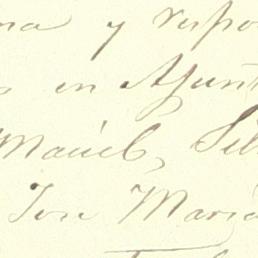 ma y respo
en Ayunt
Maciel, Sil
José Maria